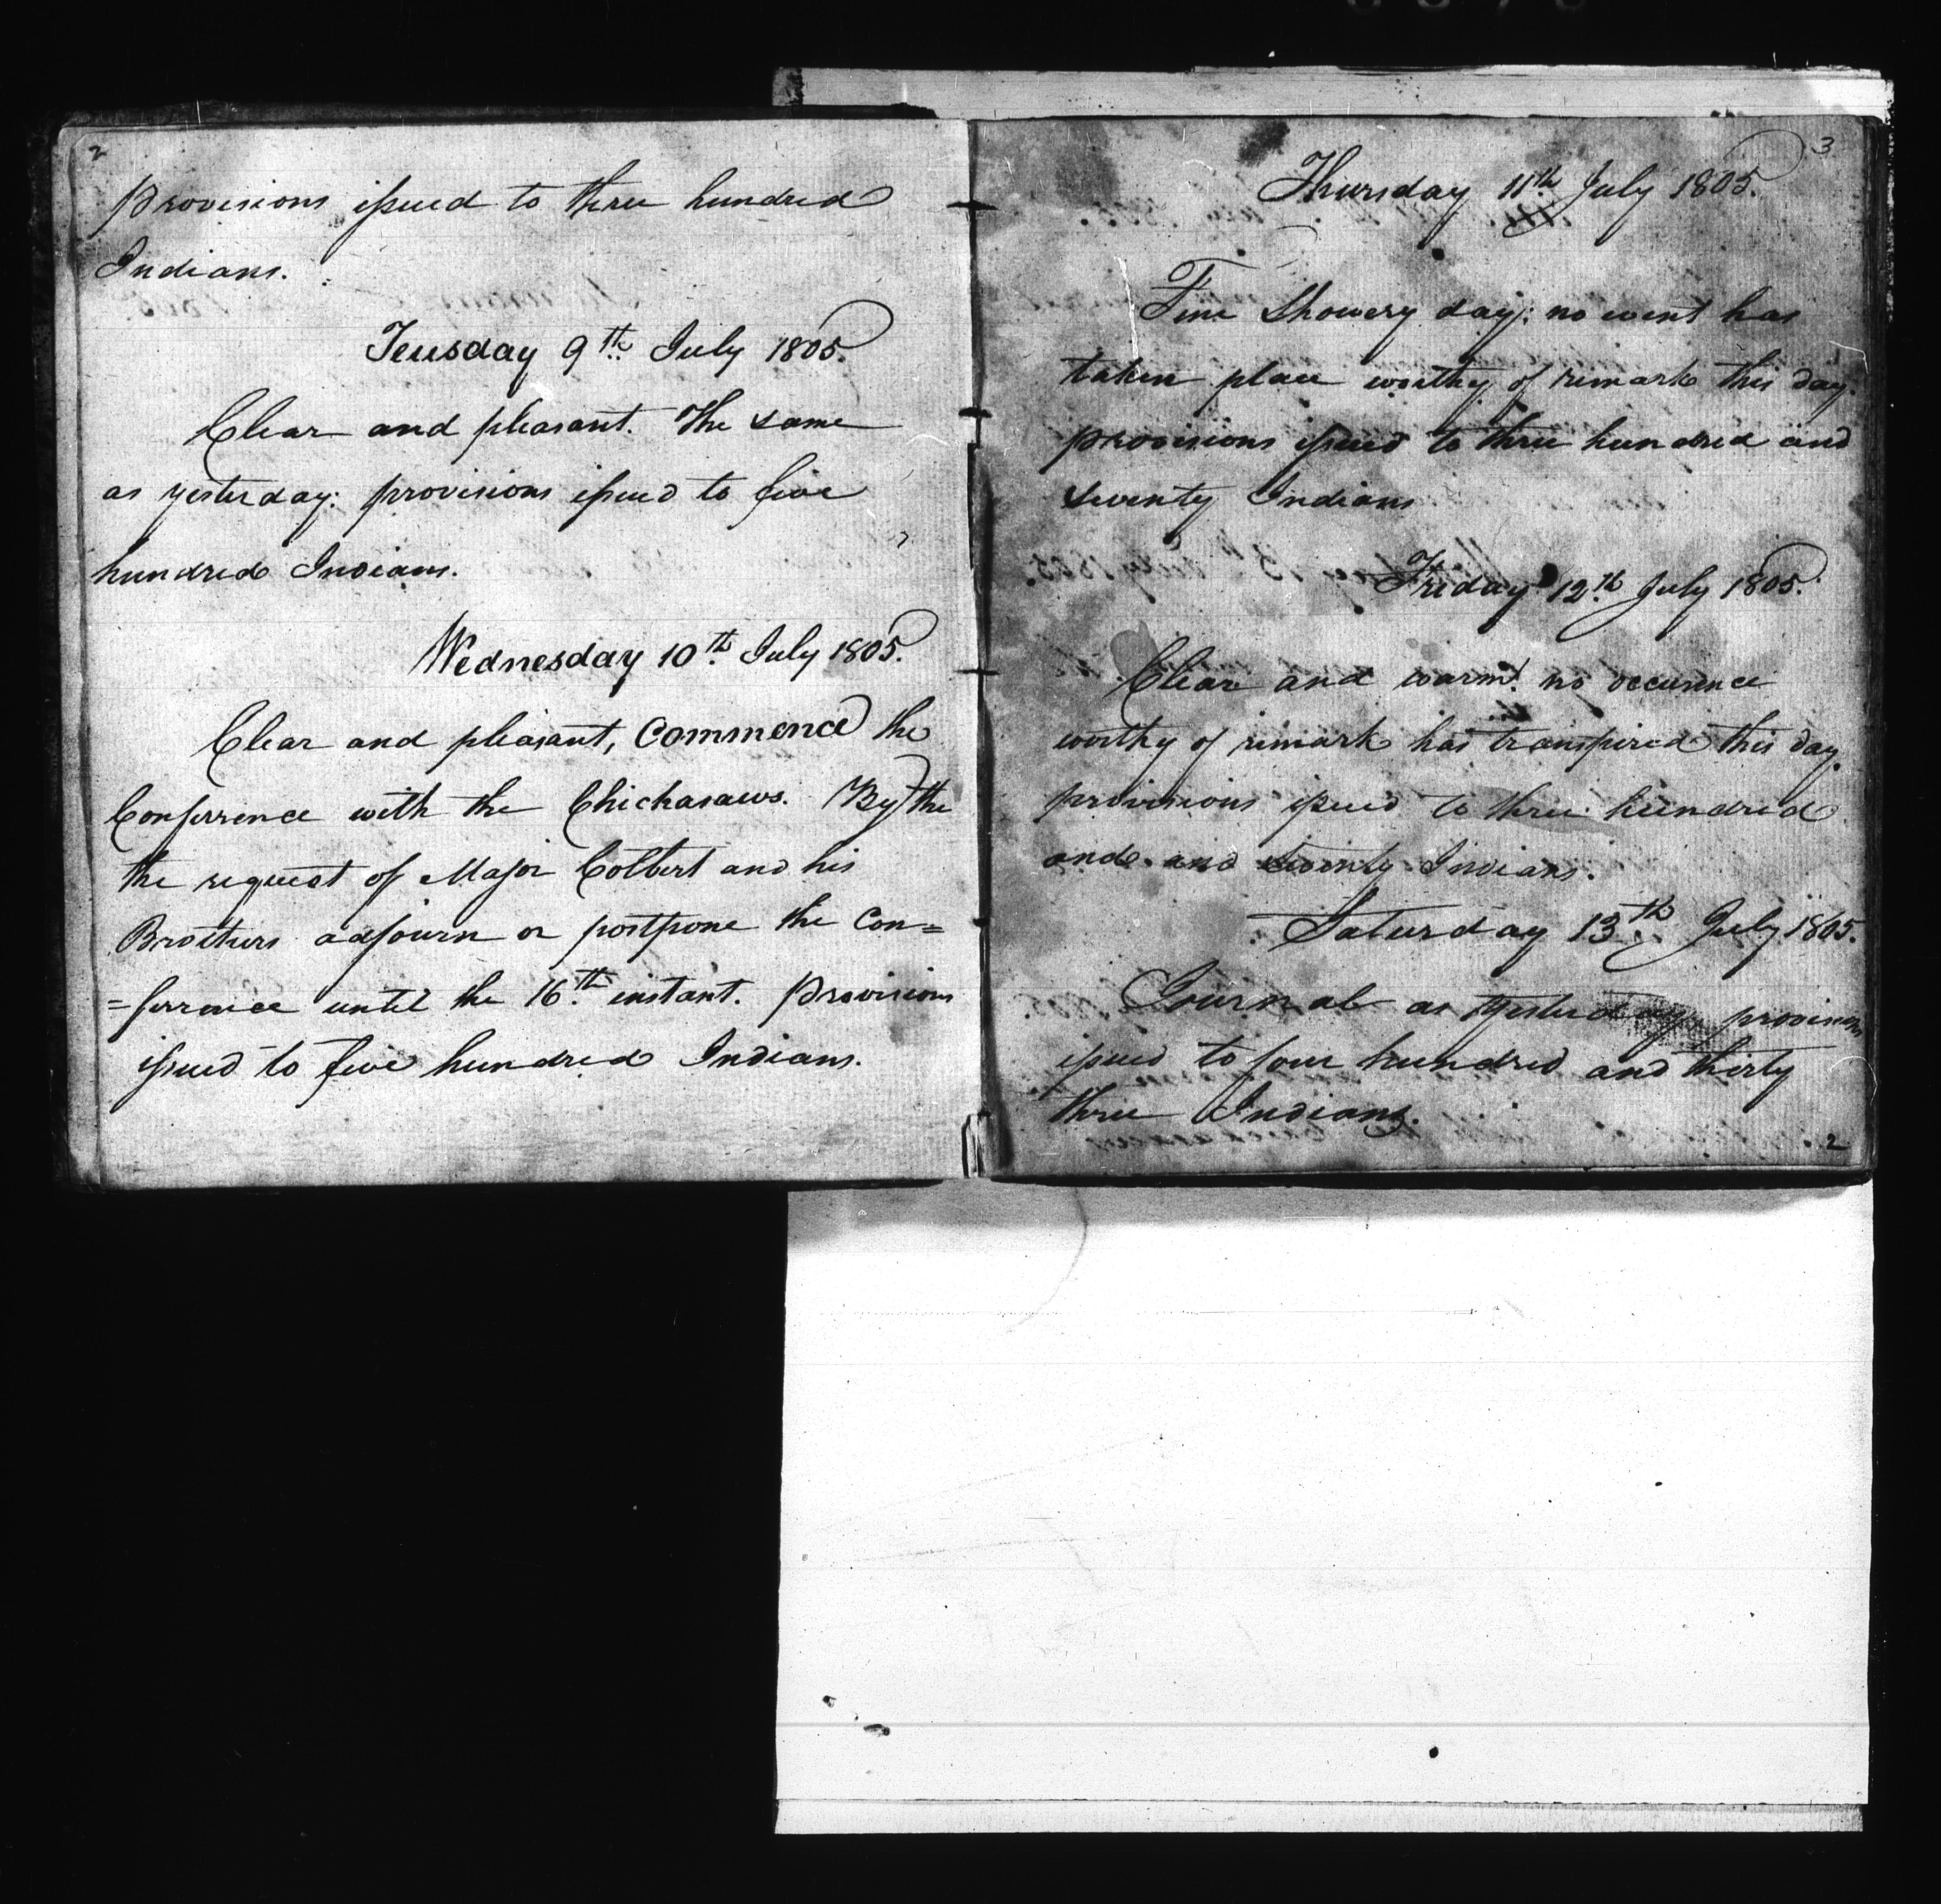 2
provisions issued to three hundred
Indians.
Teusday 9th July 1805.
Clear and pleasant. The same
as yesterday: provisions issued to five
hundred Indians.
Wednesday 10th July 1805.
Clear and pleasant, Commence the
Conferrence with the Chickasaws. By the
the request of Major Colbert and his
Brothers adjourn or postpone the Con=
=ferrence until the 16th instant. provisions
issued to five hundred Indians.
3
Thursday 11th July 1805.
Fine Showery day; no event has
taken place worthy of remark this day.
provisions issued to three hundred and
seventy Indians
Friday 12th July 1805.
Clear and warm. no occurence
worthy of remark has transpired this day.
provisions issued to three hundred
and and twenty Indians.
Saturday 13th July 1805.
Journal as yesterday provisions
issued to four hundred and thirty
three Indians.
2